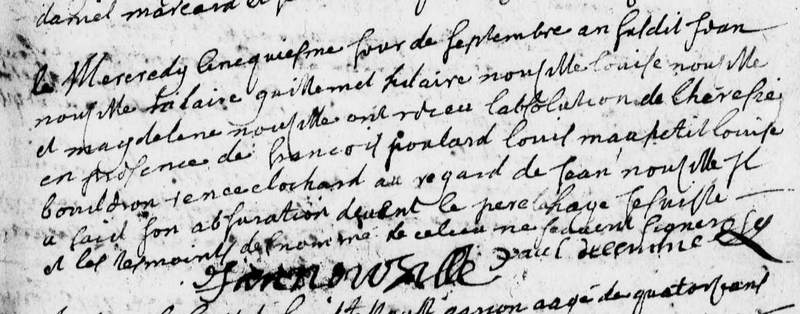 daniel marcard et
le Mercredy cincquiesme jour de septembre an susdit jean
nousille hilaire guillemet hilaire nousille louise nousille
et magdelene nousille ont receu l'absolution de l'heresie
en presence de francois poulard louis maupetit louise
bouildron renee clochard au regard de jean nousille Il
a faict son abjuration devant le pere jesuiste
et les tesmoints de nomme ne sçavent signer
Jean nousille paul
garcon aagé de quatorze ans